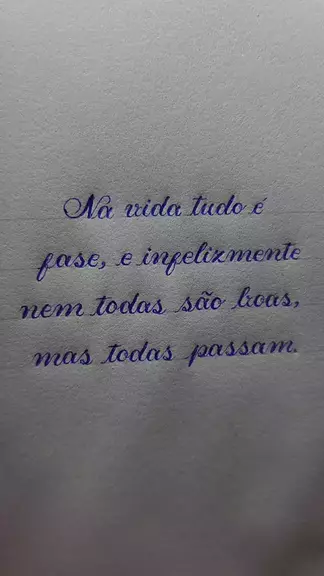 Na vida tudo é
fase, e infelizmente
nem todas são boas,
mas todas passam.